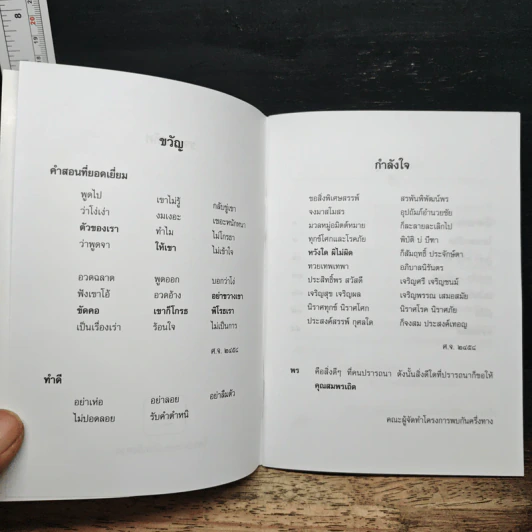 ขวัญ
คำสอนที่ยอดเยี่ยม
พูดไป เขาไม่รู้ กลับขู่เขา
ว่าโง่เง่า งมเงอะ เซอะหนักหนา
ตัวของเรา ทำไม ไม่โกรธา
ว่าพูดจา ให้เขา ไม่เข้าใจ
อวดฉลาด พูดออก บอกว่าโง่
ฟังเขาโอ้ อวดอ้าง อย่าขวางเขา
ขัดคอ เขาก็โกรธ พิโรธเรา
เป็นเรื่องเร่า ร้อนใจ ไม่เป็นการ
ศ.จ. ๒๔๕๔
ทำดี
อย่าเห่อ อย่าลอย อย่าลืมตัว
ไม่ปอดลอย รับคำตำหนิ
กำลังใจ
ขอสิ่งพิเศษสรรพ์ สรพันพิพัฒน์พร
จงมาสโมสร อุปถัมภ์อำนวยชัย
มวลหมู่อมิตต์หมาย ก็ละลายละเลิกไป
ทุกข์โศกและโรคภัย พิบัติ บ่ บีฑา
หวังใด ผิไม่ผิด ก็สัมฤทธิ์ ประจักษ์ตา
ทวยเทพเทพา อภิบาลนิรันดร
ประสิทธิ์พร สวัสดี เจริญศรี เจริญชนม์
เจริญสุข เจริญผล เจริญพรรณ เสมอสมัย
นิราศทุกข์ นิราศโศก นิราศโรค นิราศภัย
ประสงค์สรรพ์ กุศลใด ก็จงสม ประสงค์เทอญ
ศ.จ. ๒๔๕๔
พร คือสิ่งดีๆ ที่คนปรารถนา ดังนั้นสิ่งดีใดที่ปรารถนาก็ขอให้
คุณสมพรเถิด
คณะผู้จัดทำโครงการพบกันครึ่งทาง